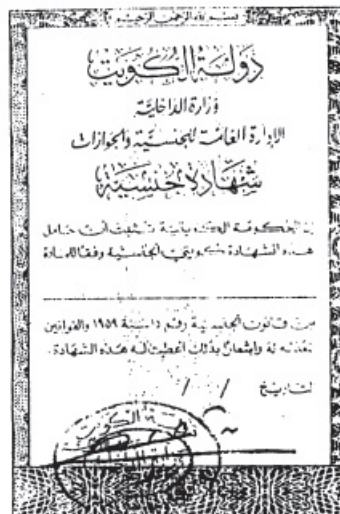 بسم الله الرحمن الرحيم
دولة الكويت
وزارة الداخلية
الإدارة العامة للجنسية والجوازات
شهادة جنسية
إن الحكومة الكويتية تثبت أن حامل
هذه الشهادة كويتي الجنسية وفقا للمادة
من قانون الجنسية رقم ١٥ لسنة ١٩٥٩ والقوانين
المعدلة له وإشعارا بذلك أعطيت له هذه الشهادة .
لتاريخ / /